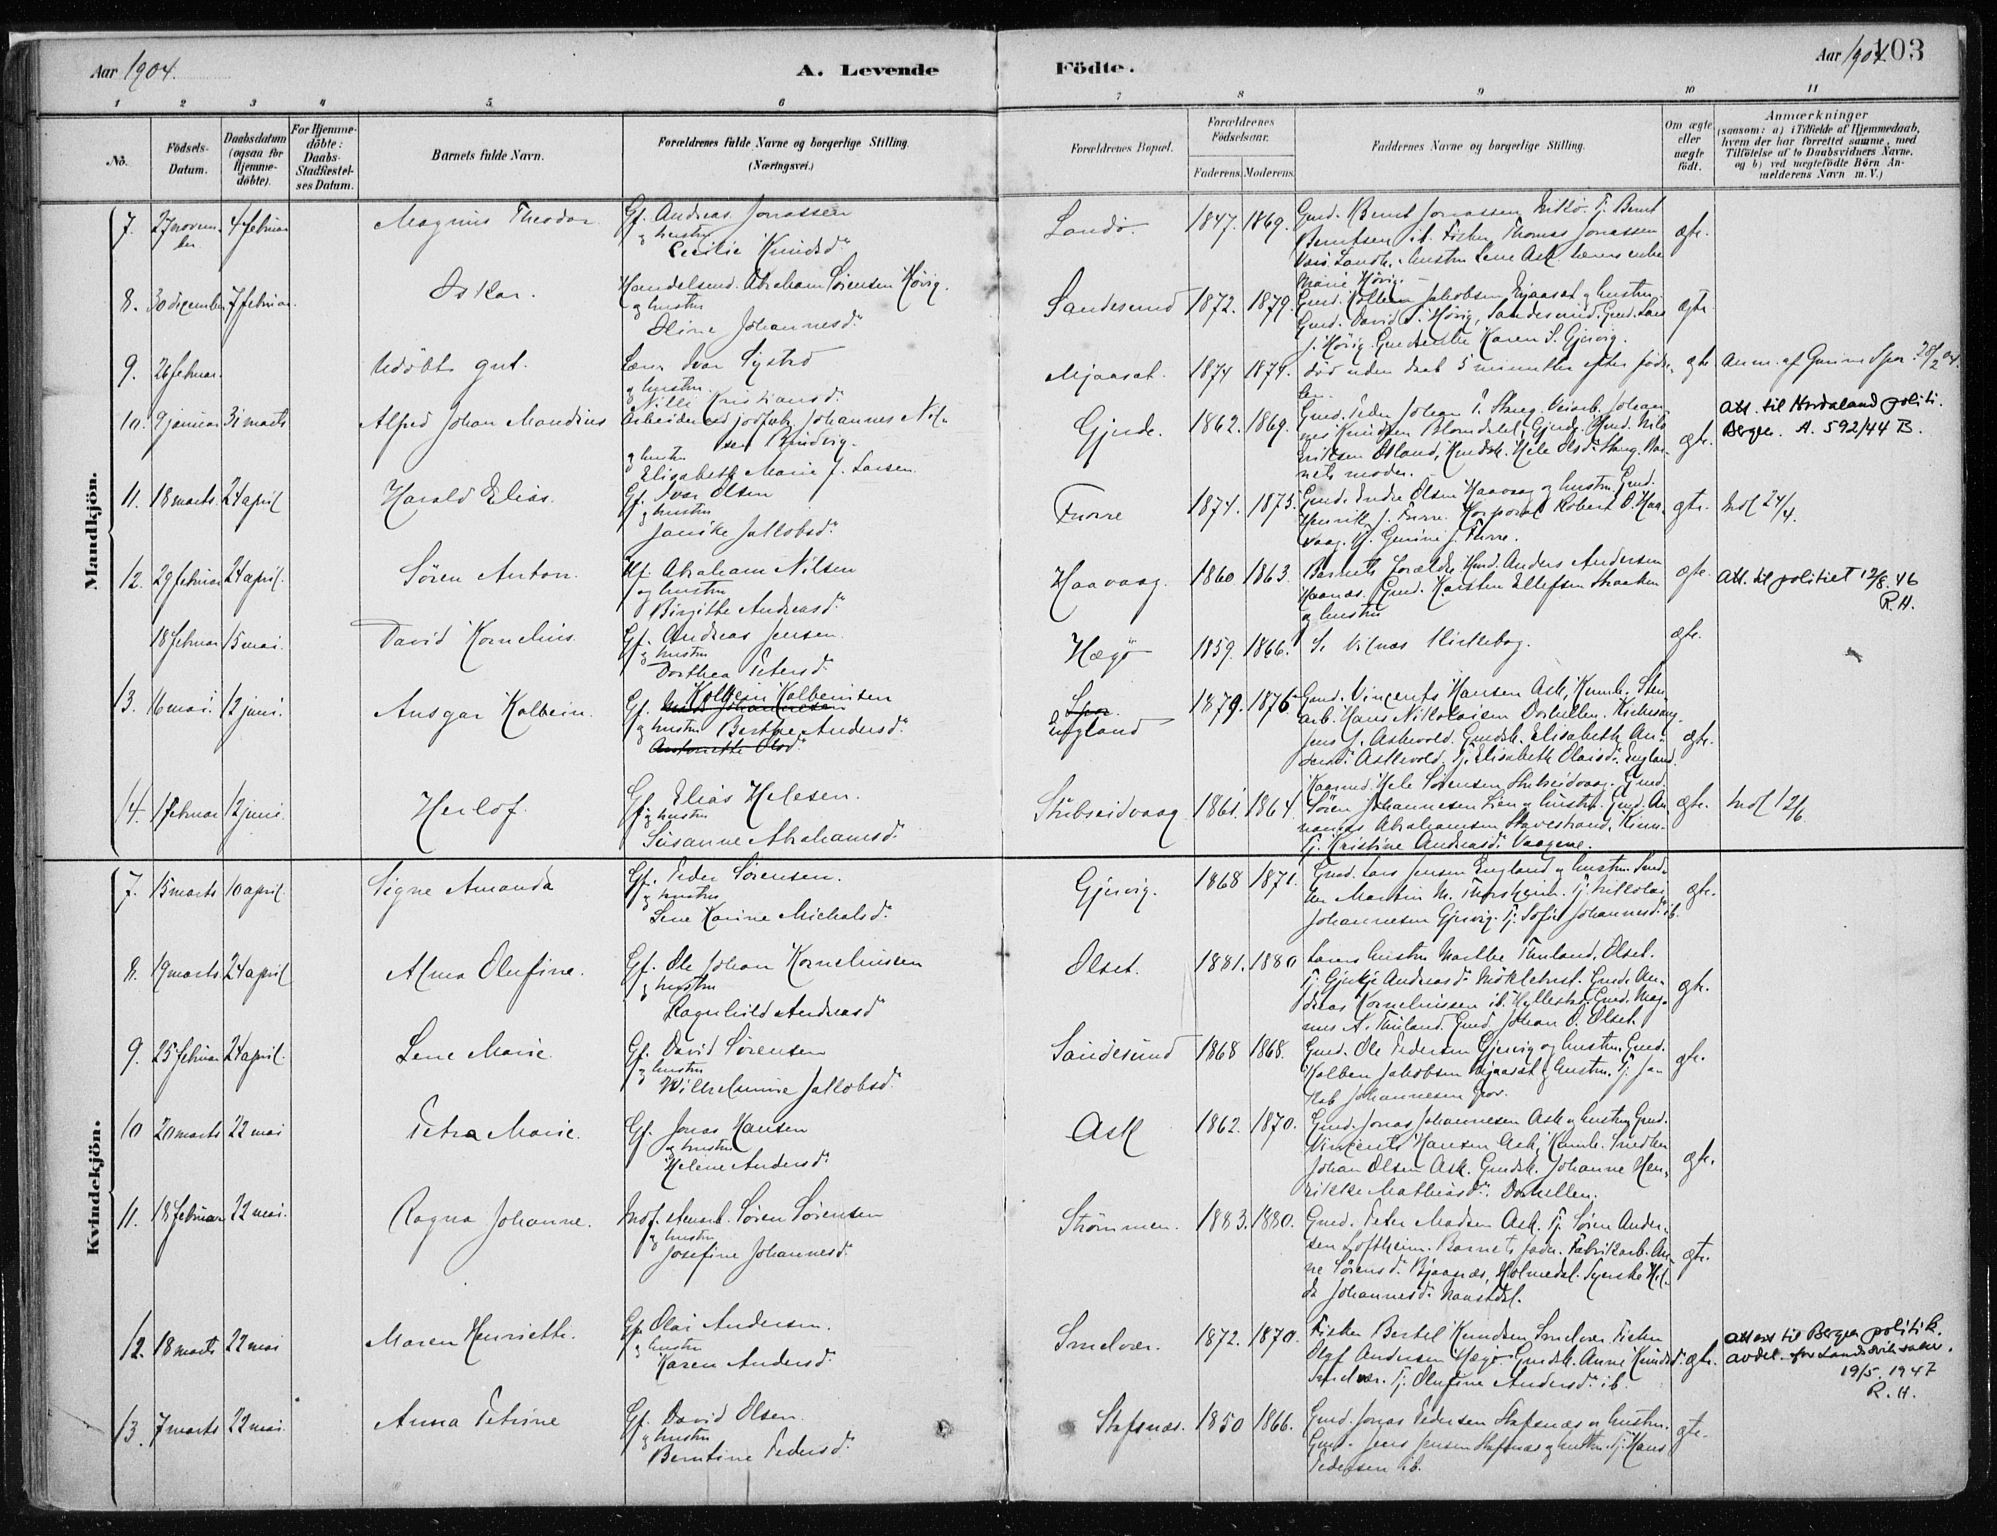 Aar 1904.
A. Levende Födte.
Aar 1904. 103
1 2 3 4 5 6 7 8 9 10 11
No.
Födsels-Datum.
Daabsdatum (ogsaa for Hjemme-döbte).
For Hjemme-döbte: Daabs-Stadfæstel-ses Datum.
Barnets fulde Navn.
Forældrenes fulde Navne og borgerlige Stilling. (Næringsvei.)
Forældrenes Bopæl.
Forældrenes Födselsaar. Faderens. Moderens.
Faddernes Navne og borgerlige Stilling.
Om ægte eller uægte født.
Anmærkninger (saasom: a) i Tilfælde af Hjemmedaab, hvem der har forrettet samme, med Tilföielse af to Daabsvidners Navne, og b) ved uægtefödte Börn Anmelderens Navn m. V.)
Mandkjön.
7. 27 novem-ber 4 februar Magnus Theodor. Gf. Andreas Jonassen
og hustru
Cecilie Knudsd.
Landö 1847. 1869. Gmd. Bernt Jonassen
Berntsen ib. Fisker Thomas Jonassen
hustru Lene Ask. ægte.
8. 30 december 7 februar. Oskar. Handelsmd. Abraham Sörensen Hövig.
og hustru
Oline Johannesd.
Sandesund 1872. 1879. Marie Hövig.
Gmd. Kolben Jakobsen Mjaaset og hustru
Gmd. David S. Hövig, Sandesund. Gmd. Lars
J. Hövig. Karen S. Gjervig. ægte.
9. 26 februar. Udöbt gut. Lærer Ivar Systad
og hustru
Nilli Kristiansd.
Mjaaset. 1874 1874. död uden daab 5 minutter efter föds-
len. ægte. Anm. af Gunine Spor 28/2 04.
10. 9 januar 31 marts Alfred Johan Mandius Arbeider ved jodfabr. Johannes Nil-
sen Rundvig.
og hustru
Elisabeth Marie J. Larsen.
Gjerde. 1862. 1869. Gmd. Peder Johan T. Stang. Veiarb. Johan-
nes Knudsen Blomdalet, Gjerde. Gmd. Nils
Eriksen Osland, Hele Olsd. Stang. Bar-
nets moder. ægte. Att. til Hordaland politi.
Bergen. A. 592/44 B.
11. 18 marts 24 april Harald Elias. Gf. Ivar Olsen
og hustru
Janike Jakobsd.
Furre 1874. 1875. Gmd. Endre Olsen Haavaag og hustru, Gmd.
Henrik J. Furre. Korporal Robert O. Haa-
vaag. Gurine J. Furre. ægte. Indf 24/4.
12. 29 februar 24 april. Sören Anton. Abraham Nilsen
og hustru
Birgitte Andreasd.
Haavaag. 1860 1863. Barnets forældre. Anders Andersen
Haanæs. Gmd. Karsten Ellefsen Staaken
og hustru ægte. Att. til politiet 12/8.46
R.H.
18 februar 15 mai. David Kornelius. Gf. Andreas Jensen.
og hustru
Dorthea Petersd.
Hægö 1859. 1866. Se Vilnæs Kirkebog. ægte.
13. 16 mai. 12 juni. Ansgar Kolbein. Gf. Kolbein Kolbeinsen
og hustru Berthe Andersd.
Spor
England 1879. 1876 Gmd. Vincents Hansen Ask, Kumle. Sten-
arb. Hans Nikolaisen Dorhellen. Kirkesang.
Jens J. Askevold. Gmdsk. Elisabeth An-
dersd. Askevold. Pj. Elisabeth Olaisd. England. ægte.
14. 1 februar 12 juni. Herlof. Gf. Elias Helesen.
og hustru
Susanne Abrahamsd.
Stubseidvaag 1861. 1864. Kaarmd. Hele Sörensen Stubseidvaag. Gmd.
Sören Johannesen Lien og hustru. Gmd. An-
nanias Abrahamsen Stavestrand, Kinn.
Pj. Kristine Andreasd. Vaagene. ægte. Indf 12/6
Kvindekjön.
7. 15 marts 10 april. Signe Amanda Gf. Peder Sörensen.
og hustru
Lene Karine Michalsd.
Gjervig. 1868 1871. Gmd. Lars Jensen England og hustru
Martin M. Thorsheim. Pj. Nikolai
Johannesen Gjervig. Pj. Sofie Johannesd. ib. ægte.
8. 19 marts 24 april Alma Olufine. Gf. Ole Johan Kornelinssen
og hustru
Ragnhild Andreasd
Olset. 1881. 1880 hustru Marthe Thuland, Olset.
Pj. Gjertje Andreasd. Mökletvist. Gmd. An-
dreas Kornelinssen ib. Hyllestad. Gmd. Mag-
nus A. Thuland. Gmd. Johan O. Olset. ægte.
9. 25 februar 24 april. Lene Marie. Gf. David Sörensen
og hustru
Wilhelmine Jakobsd.
Sandesund 1868 1868. Gmd. Ole Pedersen Gjervig og hustru. Gmd.
Kolben Jakobsen Mjaaset og hustru. Pj. Ja-
kob Johannesen Spor. ægte.
10 20 marts 22 mai Petra Marie. Gf. Jonas Hansen
og hustru
Helene Andersd.
Ask 1862. 1870. Gmd. Jonas Johannesen Ask og hustru Gmd.
Vincents Hansen Ask, Kumle.
Johan Olsen Ask. Gmdsk. Johanne Hen-
rikke Mathiasd. Dorhellen. ægte.
11. 18 februar 22 mai. Ragna Johanne. Indf. Stenarb. Sören Sörensen
og hustru
Josefine Johannesd.
Strömmen. 1883. 1880. Gmd. Peter Madsen Ask. Pj. Sören Ander-
sen Loftheim. Barnets fader. Fabrikarb. An-
ne Sörensd. Bjaanæs, Holmedal. Syerske Hil-
da Johannesd. Naustdal. ægte.
12. 18 marts 22 mai Maren Henriette. Gf. Olai Andersen.
og hustru
Karen Andersd.
Smelvær. 1872. 1870. Fisker Bertel Knudsen Smelvær. Fisker
Olaf Andersen Hægö. Gmdsk. Anne Knudsd.
Smelvær. Pj. Olufine Andersd. ib. ægte. Attest til Bergen politik.
avdel. for Landssviksaker.
19/5. 1947
R.H.
13. 7 marts 22 mai. Anna Petrine Gf. David Olsen.
og hustru
Berntine Pedersd.
Stafsnæs. 1850 1866. Gmd. Jonas Pedersen Stafsnæs og hustru.
Gmd. Jens Jensen Stafsnæs og hustru. Pj. Hans
Pedersen ib. ægte.